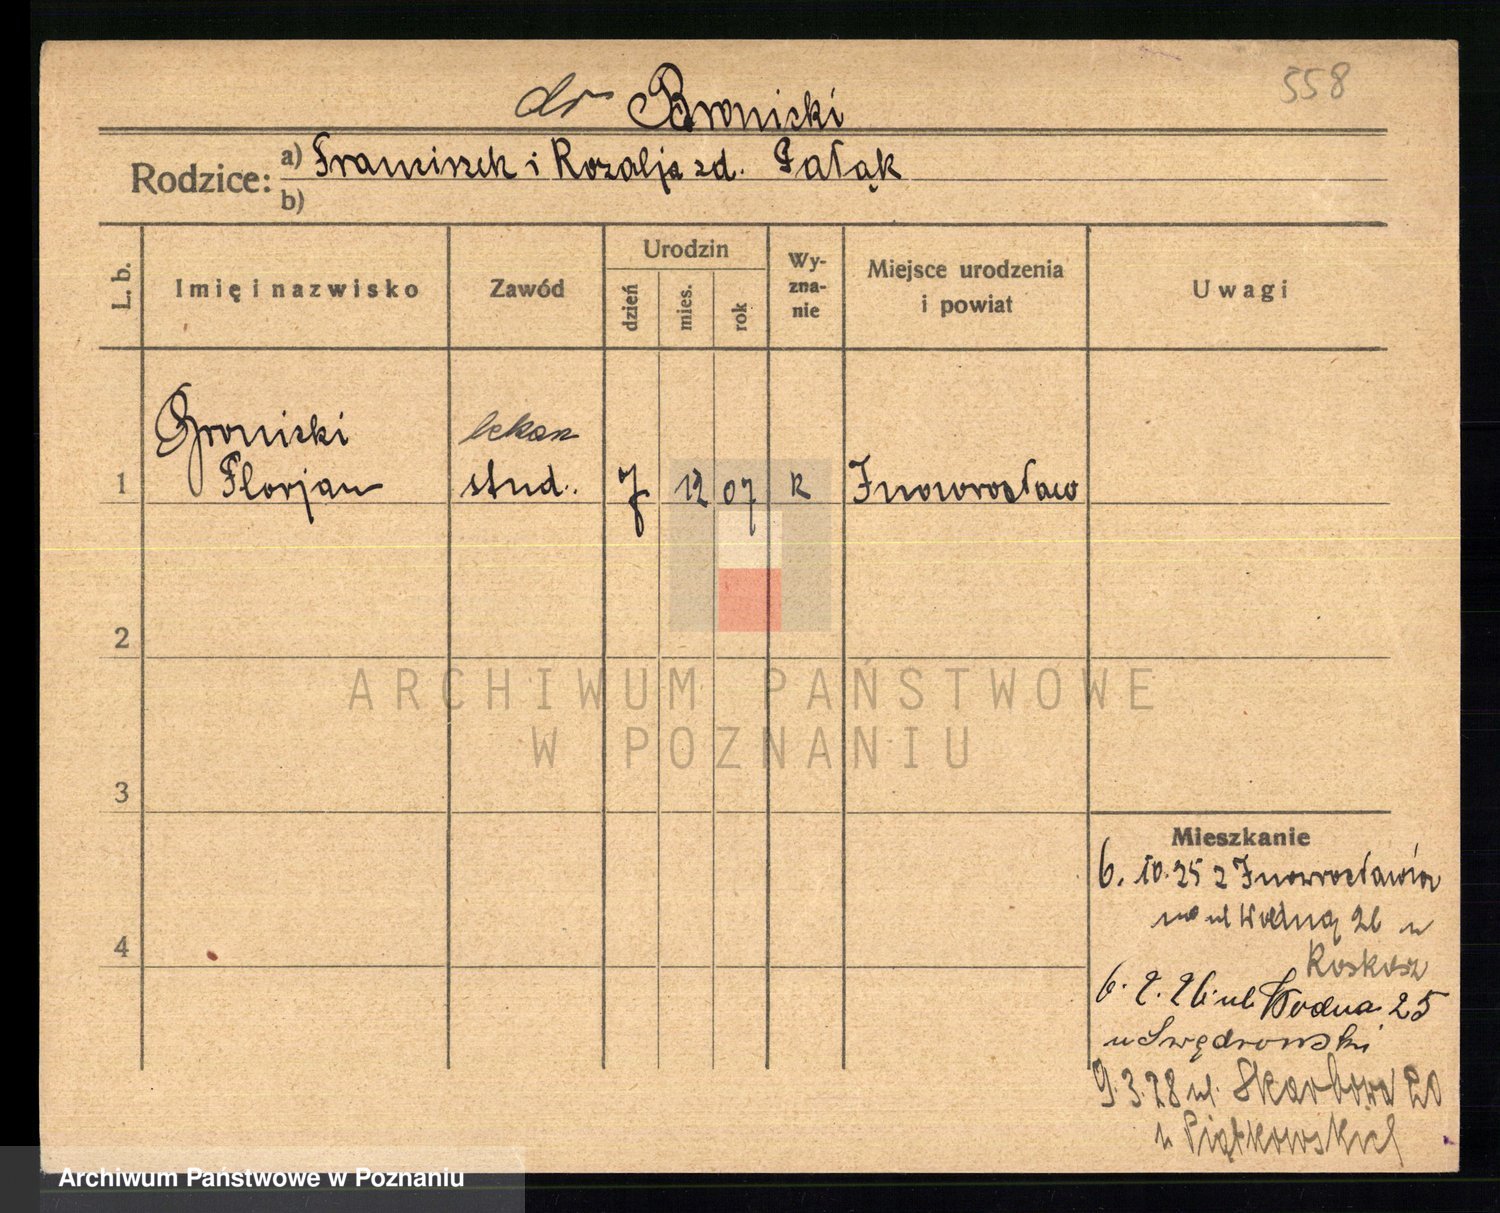 558
dr Bronicki
Rodzice: a) Franciszek i Rozalja zd. Pałąk
b)
L. b. Imię i nazwisko Zawód Urodzin dzień mies. rok Wy-zna-nie Miejsce urodzenia i powiat Uwagi
Bronicki lekarz
1 Florjan stud. 7 12 07 R Inowrocław
2
3
4
Mieszkanie
6. 10. 25 z Inowrocławia
na ul Wodną 26 u
6. 2. 26 ul Wodna 25
u Swędrowski
9. 3. 28 ul. Skarbowa 20
u Piątkowskich
ARCHIWUM PAŃSTWOWE
W POZNANIU
Archiwum Państwowe w Poznaniu